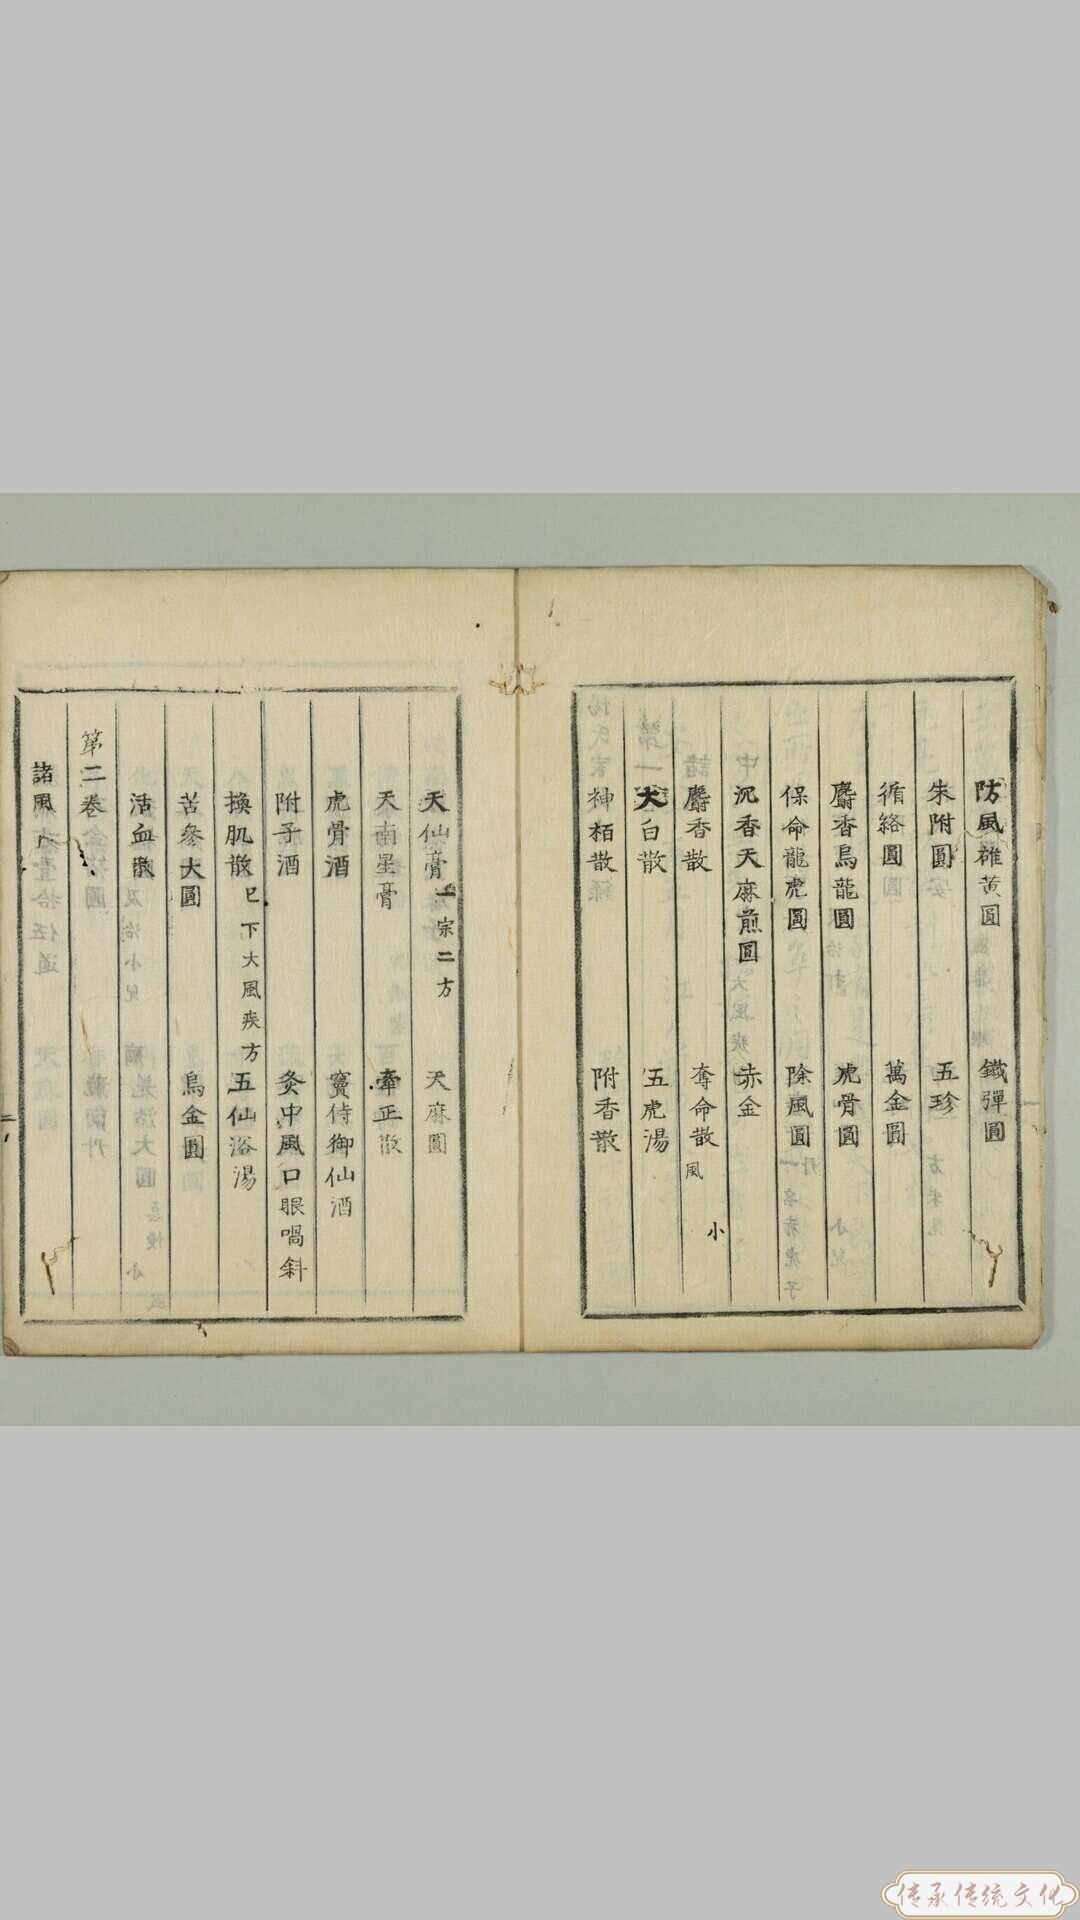 防風雄黄圓 鐵彈圓
朱附圓 五珍
循絡圓 萬金圓
麝香烏龍圓 虎骨圓
保命龍虎圓 除風圓
沉香天麻煎圓 赤金
麝香散 奪命散 風 小
大白散 五虎湯
神栢散 附香散
天仙膏 一宗二方 天麻圓
天南星膏 牽正散
虎骨酒 竇侍御仙酒
附子酒 灸中風口眼喎斜
換肌散 已下大風疾方 五仙浴湯
苦參大圓 烏金圓
活血散
第二卷
諸風
二
传承传统文化